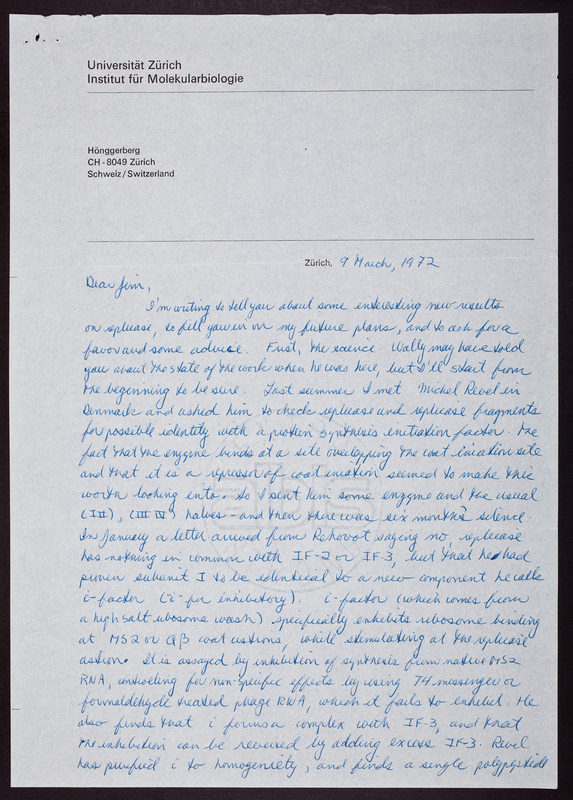 Universität Zürich
Institut für Molekularbiologie
Hönggerberg
CH-8049 Zürich
Schweiz/Switzerland
Zürich, 9 March, 1972
Dear Jim,
I'm writing to tell you about some interesting new results
on replicase, to fill you in on my future plans, and to ask for a
favor and some advice. First, the science. Wally may have told
you about the state of the work when he was here, but I'll start from
the beginning to be sure. Last summer I met Michel Revel in
Denmark and asked him to check replicase and replicase fragments
for possible identity with a protein synthesis initiation factor. The
fact that the enzyme binds at a site overlapping the coat iniation site
and that it is a repressor of coat iniation seemed to make this
worth looking into. So I sent him some enzyme and the usual
(I II), (III IV) halves - and then there was six months' silence.
In January a letter arrived from Rehovot saying no, replicase
has nothing in common with IF-2 or IF-3, but that he had
proven subunit I to be identical to a new component he calls
i-factor ("i" for inhibitory). i-factor (which comes from
a high salt ribosome wash) specifically inhibits ribosome binding
at MS2 or Qβ coat cistrons, while stimulating at the replicase
cistron. It is assayed by inhibition of synthesis from native MS2
RNA, controlling for non-specific effects by using T4 messenger or
formaldehyde treated phage RNA, which it fails to inhibit. He
also finds that i forms a complex with IF-3, and that
the inhibition can be reversed by adding excess IF-3. Revel
has purified i to homogeniety, and finds a single polypeptide